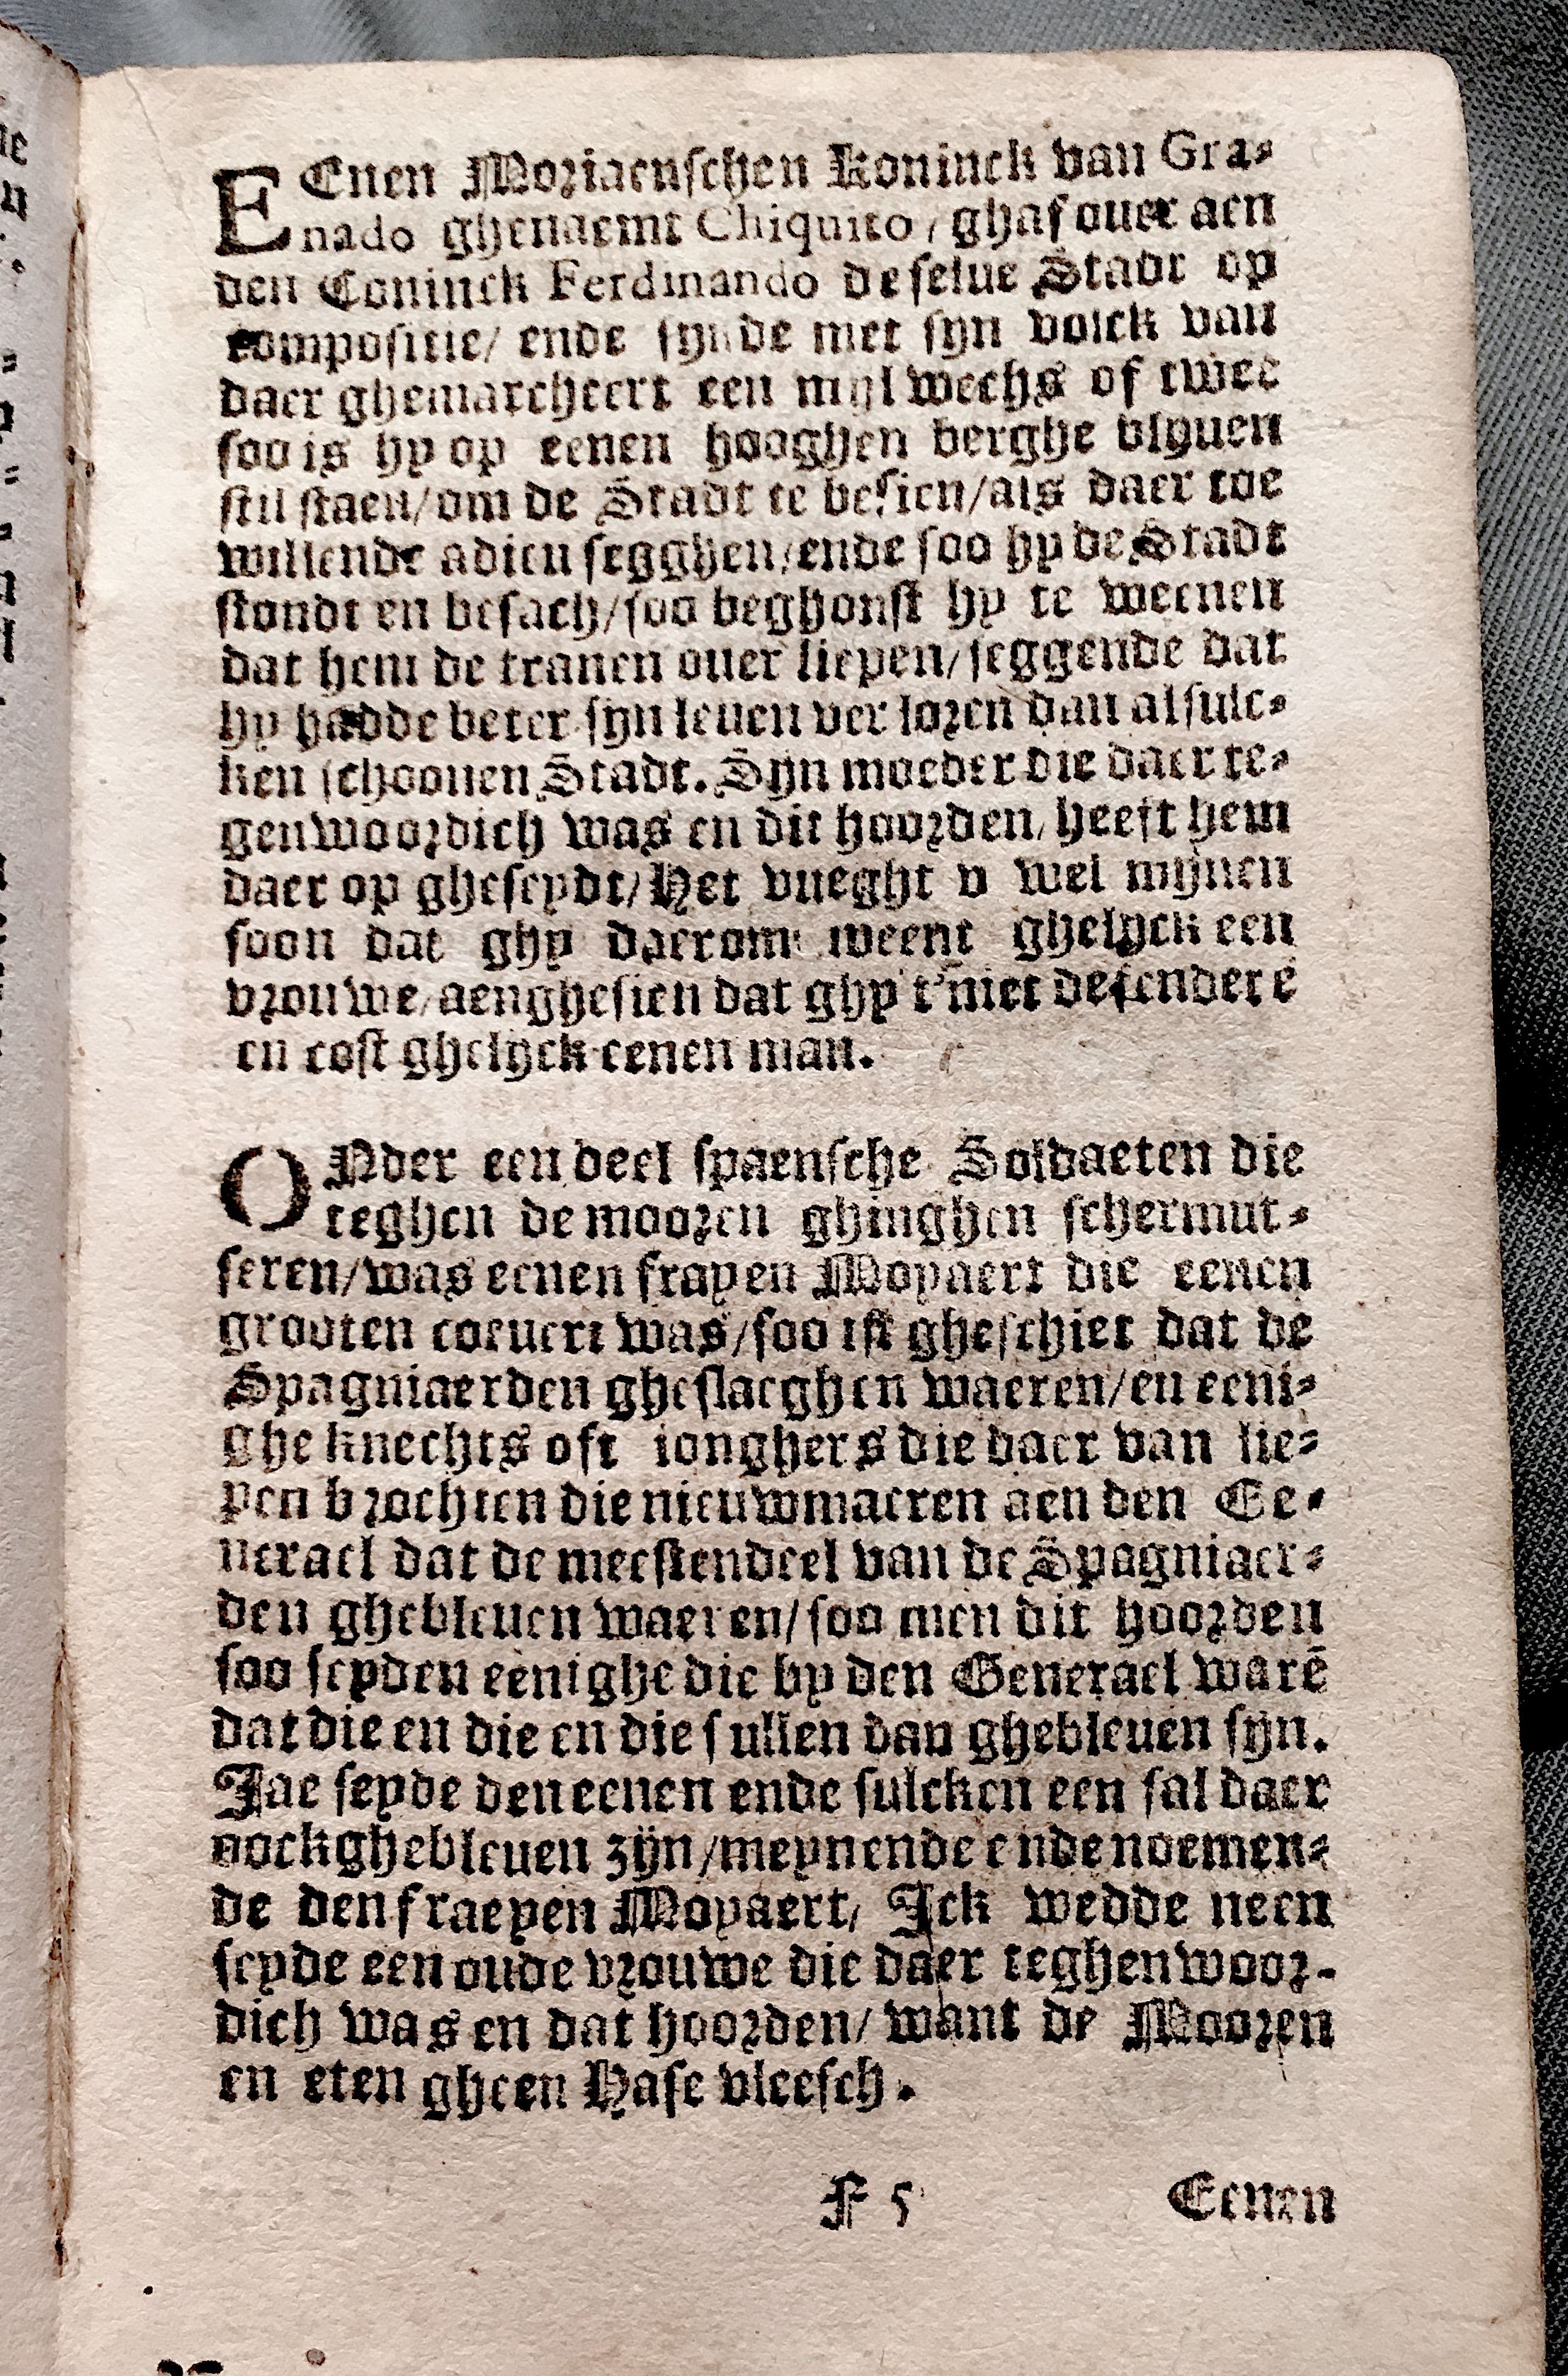 EEnen Moriaenschen Koninck van Gra-
nado ghenaemt Chiquito / ghaf ouer aen
den Coninck Ferdinando de selue Stadt op
compositie / ende synde met syn volck van
daer ghemarcheert een myl wechs of twee
soo is hy op eenen hooghen berghe blyuen
stil staen / om de Stadt te besien / als daer toe
willende adieu segghen / ende soo hy de Stadt
stondt en besach / soo beghonst hy te weenen
dat hem de tranen ouer liepen / seggende dat
hy hadde beter syn leuen ver loren dan alsulc-
ken schoonen Stadt. Syn moeder die daer te-
genwoordich was en dit hoorden / heeft hem
daer op gheseydt / Het vueght v wel mijnen
soon dat ghy daerom weent ghelyck een
vrouwe / aenghesien dat ghy t'niet defendere
en cost ghelyck eenen man.
ONder een deel spaensche Soldaeten die
teghen de mooren ghinghen schermut-
seren / was eenen frayen Moyaert die eenen
grooten coeuert was / soo ist gheschiet dat de
Spagniaerden gheslaeghen waeren / en eeni-
ghe knechts oft ionghers die daer van lie-
pen brochten die nieuwmaeren aen den Ge-
nerael dat de meestendeel van de Spagniaer-
den ghebleuen waeren / soo men dit hoorden
soo seyden eenighe die by den Generael warē
dat die en die en die sullen dan ghebleuen syn.
Jae seyde den eenen ende sulcken een sal daer
oock ghebleuen zijn / meynende ende noemen-
de den fraeyen Moyaert / Jck wedde neen
seyde een oude vrouwe die daer teghenwoor-
dich was en dat hoorden / want de Mooren
en eten gheen Hase vleesch.
F 5 Eenen